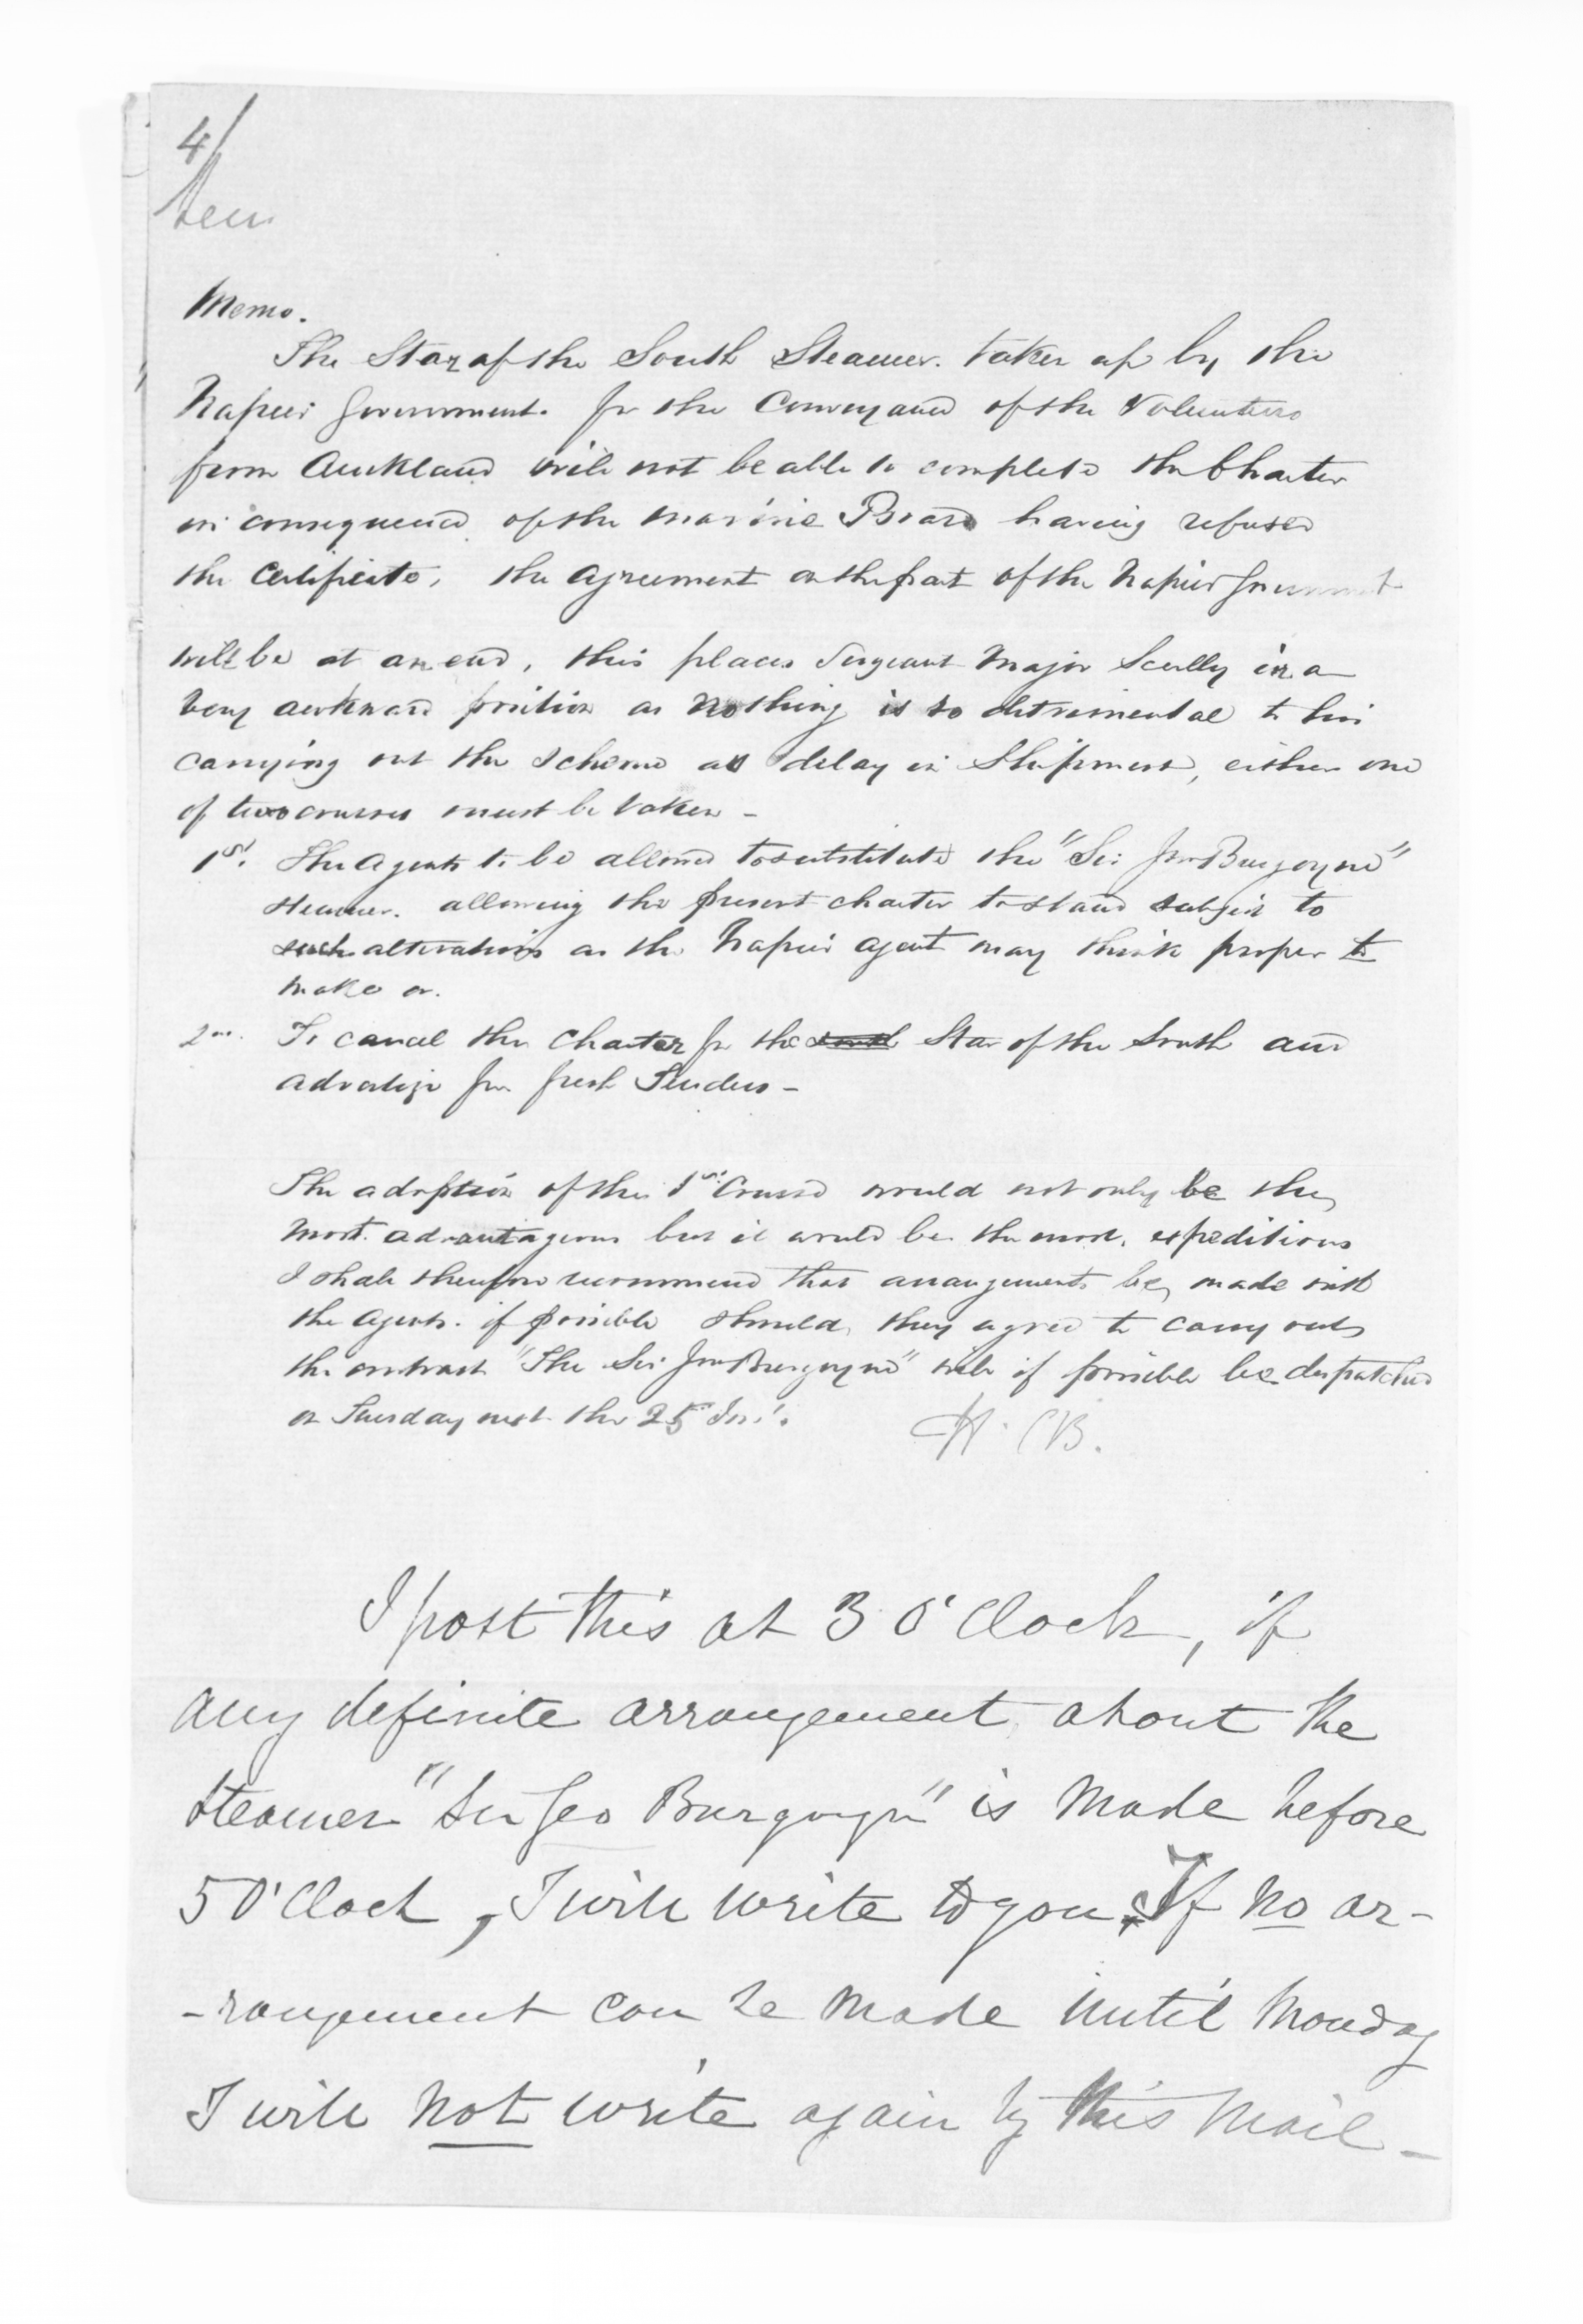 4/
Memo.
The Star of the South Steamer. taken up by the
Napier Government. for the Conveyance of the Volunteers
from Auckland will not be able to complete the Charter
in consequence of the Marine Board having refused
the Certificate, the Agreement on the part of the Napier Government
will be at an end, this places Sergeant Major Scully in a
very awkward position as nothing is so detrimental to his
carrying out the scheme as delay in Shipment, either one
of two courses must be taken -
1st. The Agents to be allowed to substitute the "Sir Jno Burgoyne"
steamer. allowing the present charter to stand subject to
such alterations as the Napier agent may think proper to
make or.
2nd. To cancel the Charter for the south Star of the South and
advertize for fresh Tenders -
The adoption of the 1st Course would not only be the
most advantageous but it would be the most expeditious
I shall therefore recommend that arrangements be made with
the Agents. if possible should they agree to carry out
the contract "The Sir Jno Burgoyne" will if possible be despatched
on Tuesday next the 25 Inst.
H. C B.
I post this at 3 O'Clock, if
any definite arrangement about the
Steamer "Sir Geo Burgoyne" is made before
5 O'Clock, I will write to you. If no ar-
-rangement can be made until Monday
I will not write again by this Mail -